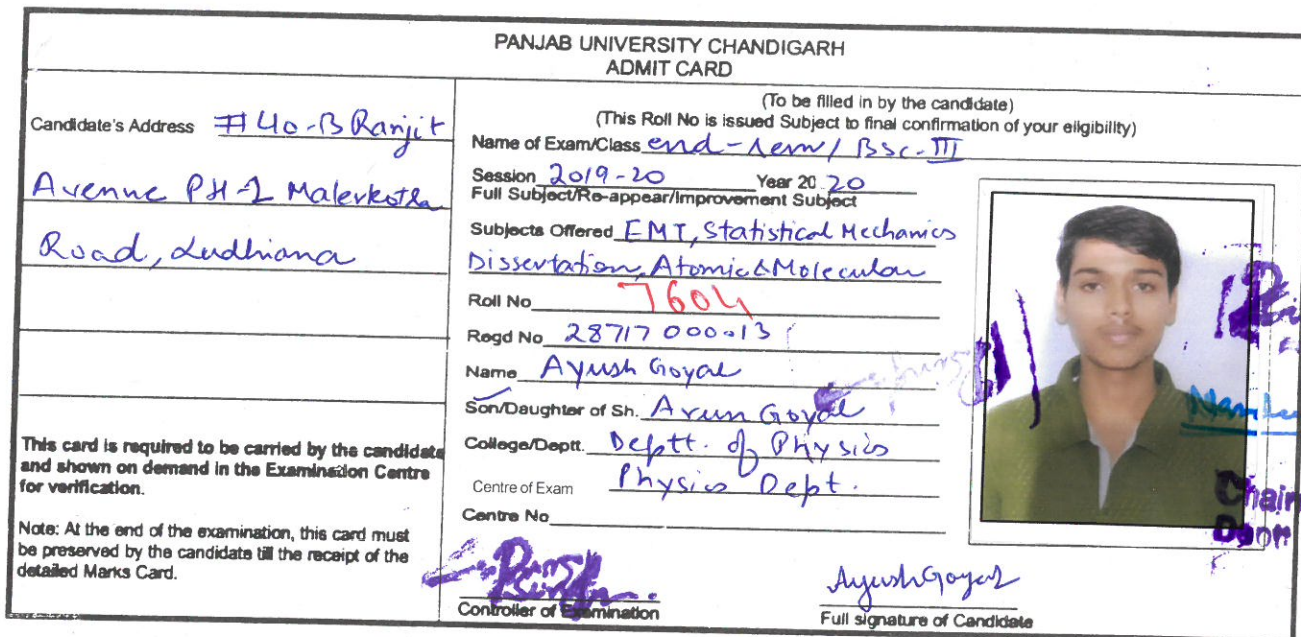 PANJAB UNIVERSITY CHANDIGARH
ADMIT CARD
Candidate's Address #40-B Ranjit
Avenue PH-2 Malerkotla
Road, Ludhiana
This card is required to be carried by the candidate
and shown on demand in the Examination Centre
for verification.
Note: At the end of the examination, this card must
be preserved by the candidate till the receipt of the
detailed Marks Card.
(To be filled in by the candidate)
(This Roll No is issued Subject to final confirmation of your eligibility)
Name of Exam/Class end-sem / BSc.-III
Session 2019-20 Year 20 20
Full Subject/Re-appear/Improvement Subject
Subjects Offered EMT, Statistical Mechanics
Dissertation, Atomic & Molecular
Roll No 7604
Regd No 28717000013
Name Ayush Goyal
Son/Daughter of Sh. Arun Goyal
College/Deptt. Deptt. of Physics
Centre of Exam Physics Dept.
Centre No
Controller of Examination
Ayush Goyal
Full signature of Candidate
Chair